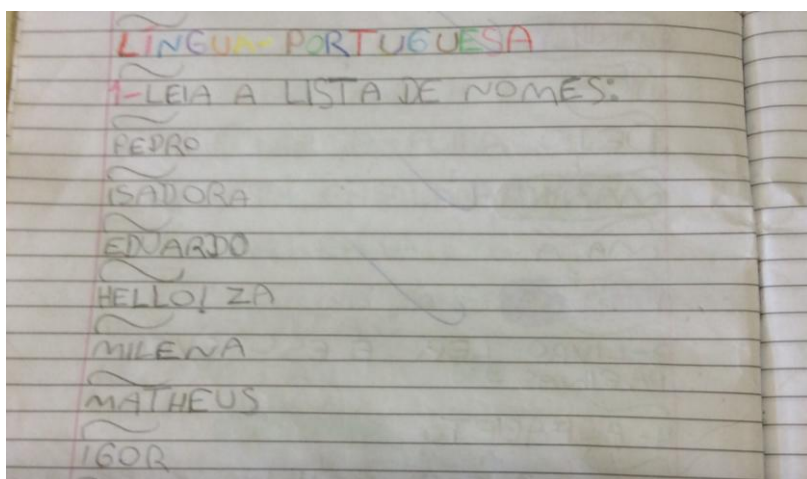 LÍNGUA-PORTUGUESA
1-LEIA A LISTA DE NOMES:
PEDRO
ISADORA
EDUARDO
HELLOI ZA
MILENA
MATHEUS
IGOR